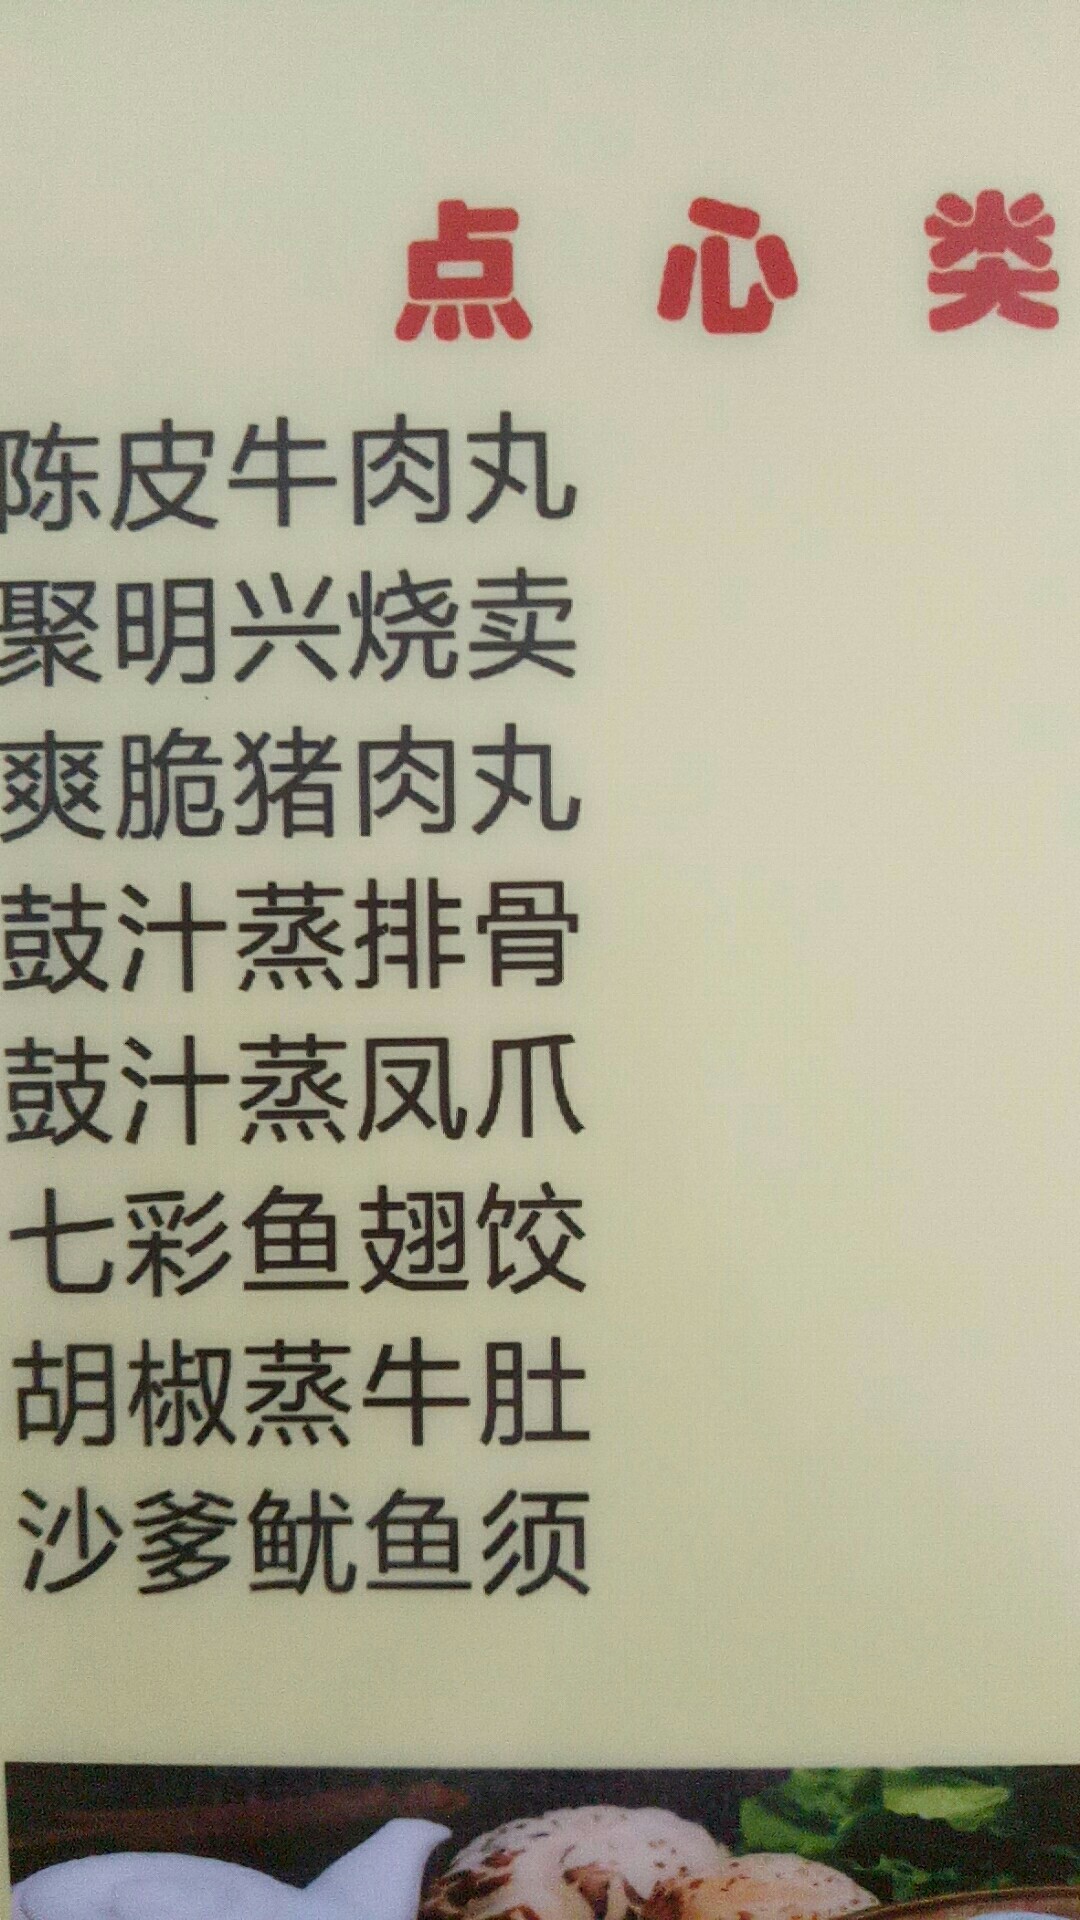 点心类
陈皮牛肉丸
聚明兴烧卖
爽脆猪肉丸
鼓汁蒸排骨
鼓汁蒸凤爪
七彩鱼翅饺
胡椒蒸牛肚
沙爹鱿鱼须